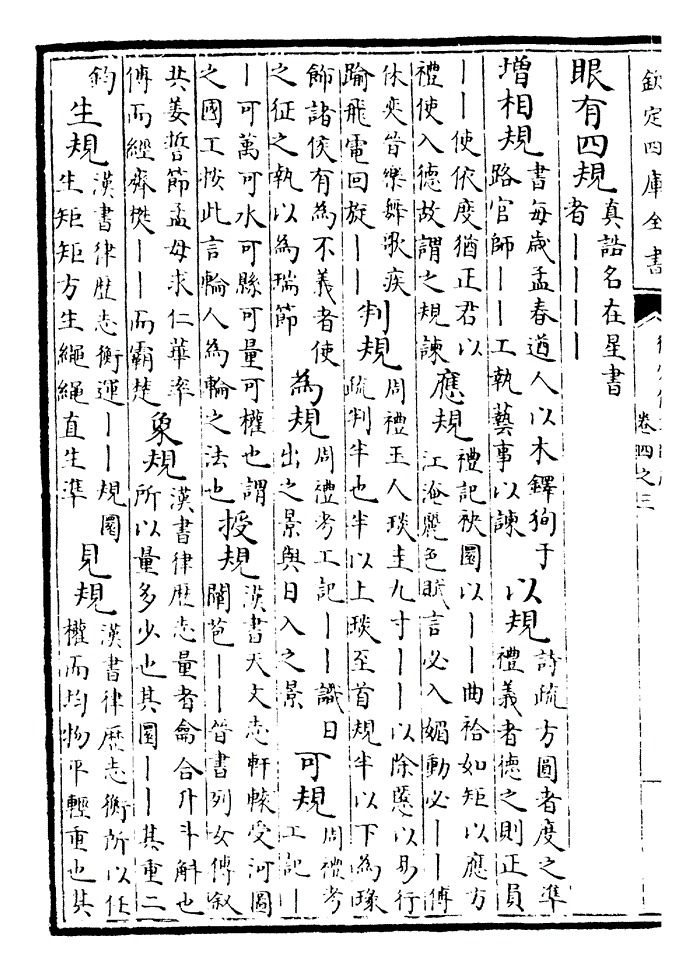 欽定四庫全書
卷四之三
眼有四規 真誥名在星書
者丨丨丨丨
增相規 書每歲孟春遒人以木鐸狥于
路官師丨丨工執藝事以諫
以規 詩疏方圓者度之準
禮義者德之則正員
丨丨使依度猶正君以
禮使入德故謂之規諫
應規 禮記袂圜以丨丨曲袷如矩以應方
江淹麗色賦言必入媚動必丨丨傅
休奕笞樂舞歌疾
踰飛電回旋丨丨
判規 周禮王人琰圭九寸丨丨以除慝以易行
疏判半也半以上琰至首規半以下為瑑
飾諸侯有為不義者使
之征之執以為瑞節
為規 周禮考工記丨丨識日
出之景與日入之景
可規 周禮考
工記丨
丨可萬可水可縣可量可權也謂
之國工按此言輪人為輪之法也
授規 漢書天文志軒轅受河圖
闓苞丨丨晉書列女傳叙
共姜誓節孟母求仁華率
傅而經齊樊丨丨而霸楚
象規 漢書律歷志量者龠合升斗斛也
所以量多少也其圜丨丨其重二
鈞
生規 漢書律歷志衡運丨丨規圜
生矩矩方生繩繩直生準
見規 漢書律歷志衡所以任
權而均物平輕重也其